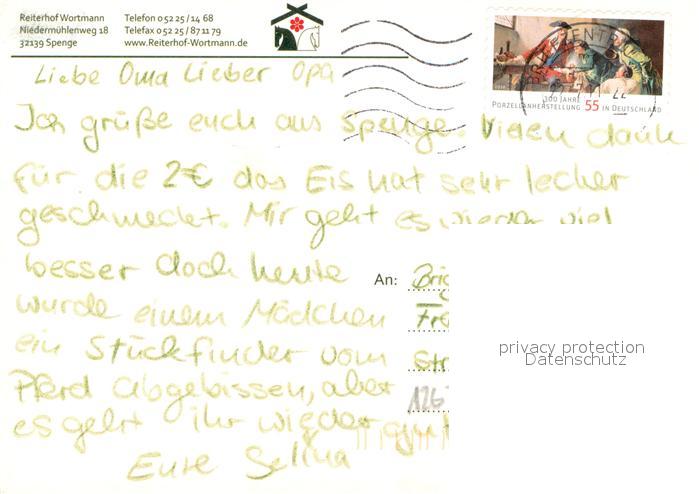 Reiterhof Wortmann
Niedermühlenweg 18
32139 Spenge
Telefon 0 52 25 / 14 68
Telefax 0 52 25 / 87 11 79
www.Reiterhof-Wortmann.de
300 JAHRE
PORZELLANHERSTELLUNG 55 IN DEUTSCHLAND
Liebe Oma Lieber Opa
Ich grüße euch aus Spenge. Vielen dank
für die 2€ das Eis hat sehr lecker
geschmeckt. Mir geht es wieder viel
besser doch heute
wurde einem Mädchen
ein Stückfinder vom
Pferd abgebissen, aber
es geht ihr wieder gut
Eure Selina
An: Brig
Fre
Str
126
privacy protection
Datenschutz